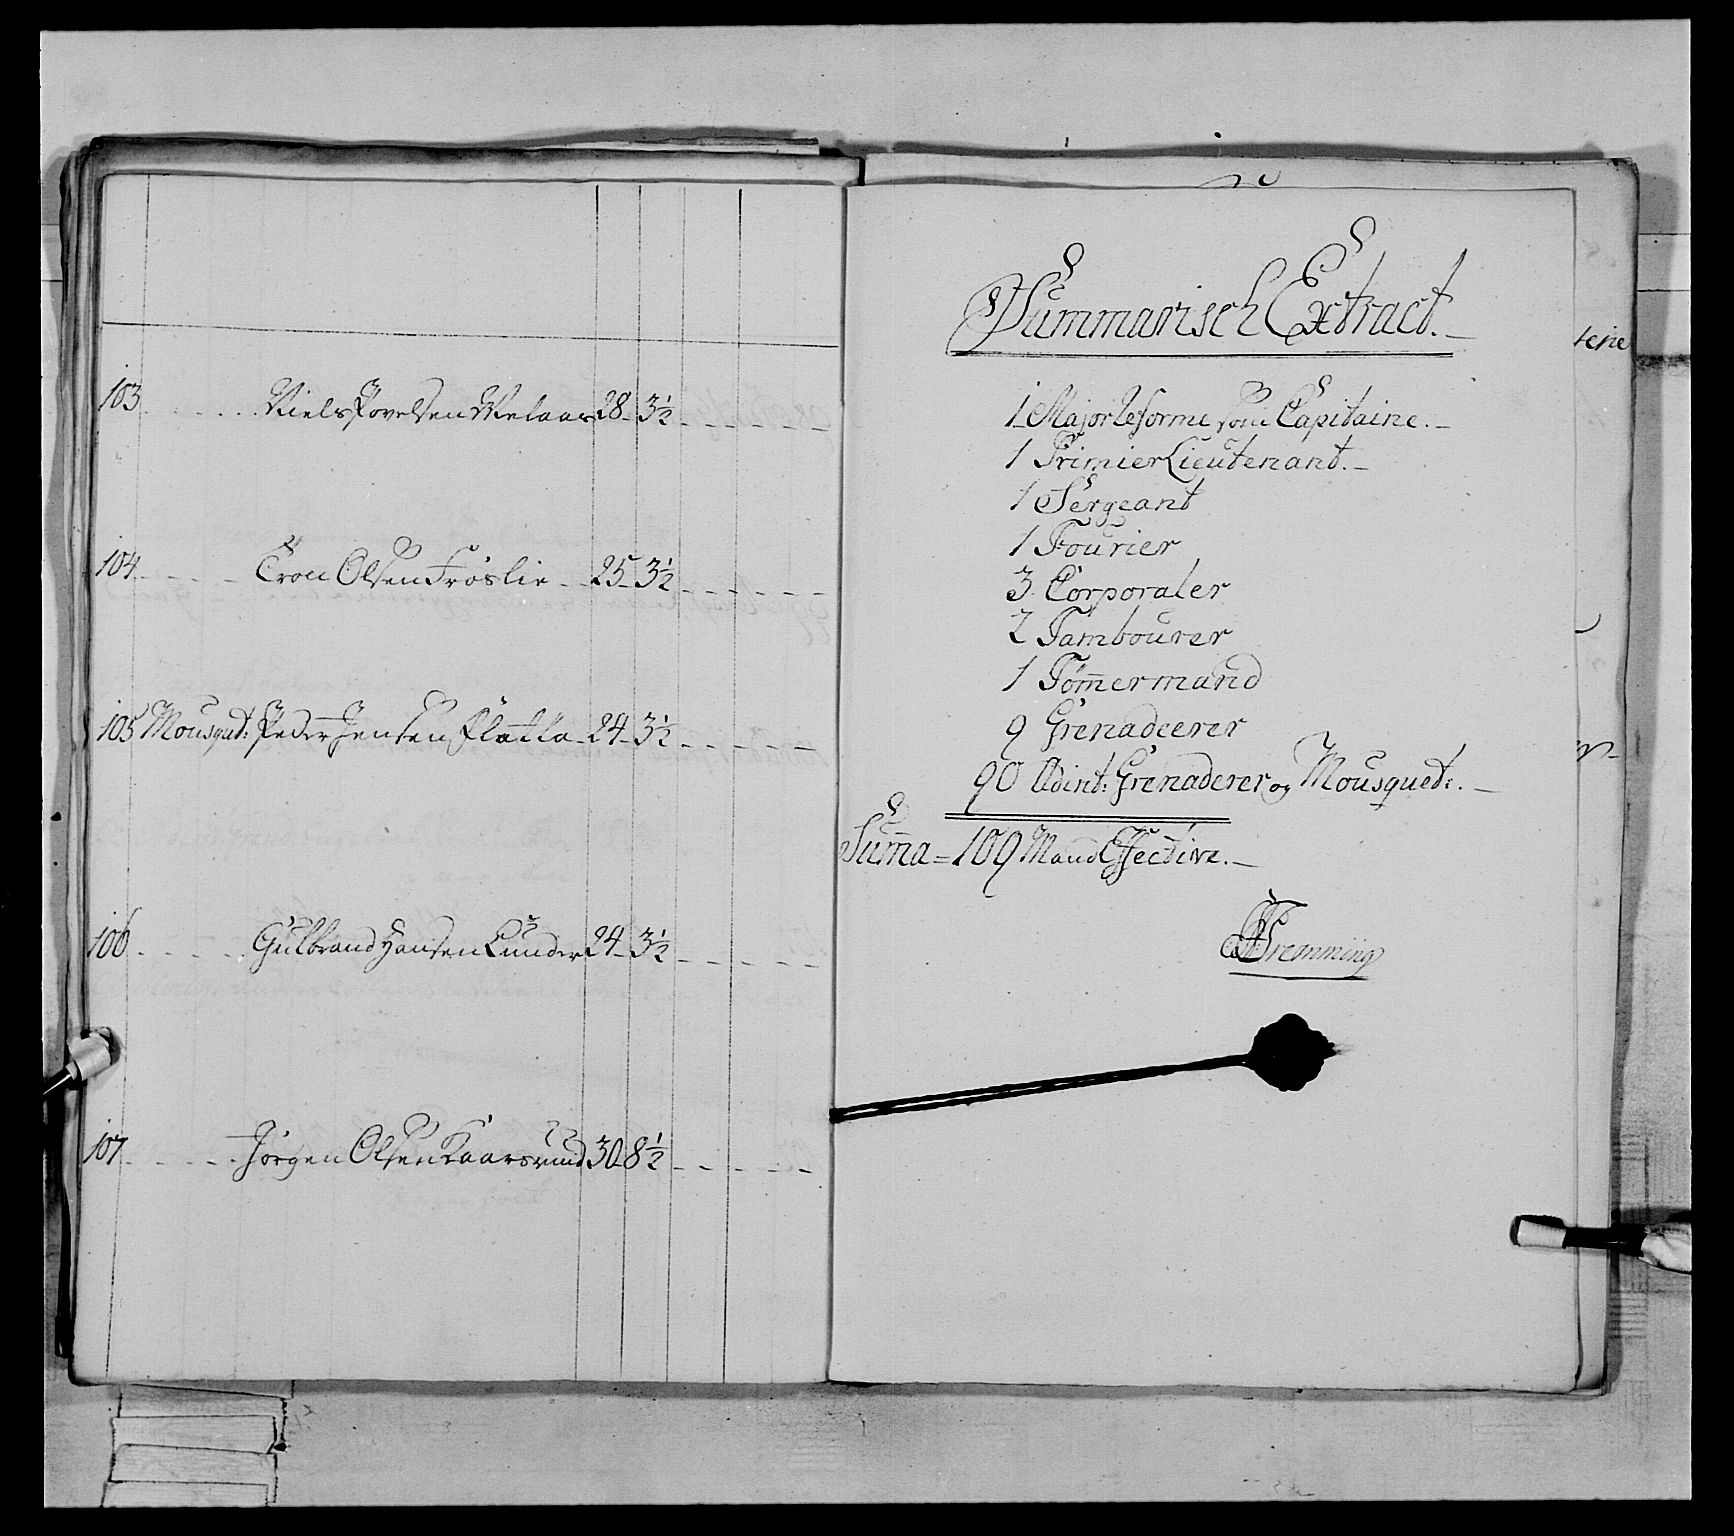 103 Niels Povelsen Melaas 28 3½
104 Tron Olsen Fröslie 25 3½
105 Mousquet: Peder Jensen Flatla 24 3½
106 Gulbrand Hansen Lunder 24 3½
107 Jörgen Olsen Kaarsrud 30 8½
Summarisch Extract.
1 Major Reforme som Capitaine.
1 Primier Lieutenant.
1 Sergeant
1 Fourier
3 Corporaler
2 Tambourer
1 Töm̄ermand
9 Grenadeerer
90 Adint: Grenaderer og Mousquet:.
Sum̄a = 109 Mand Effective.